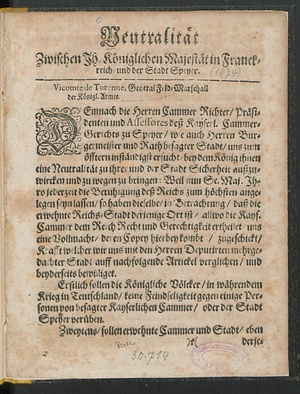 Neutralität
Zwischen Jh. Königlichen Majestät in Franck-
reich und der Stadt Speyer.
(1674)
Vicomte de Turenne, General Feld-Marschall
der Königl. Armee.
DEmnach die Herren Cammer Richter / Präsi-
denten und Assessores deß Käyserl. Cammer-
Gerichts zu Speyer / wie auch Herren Bur-
germeister und Rath besagter Stadt / uns zum
öfftern inständigst ersucht / bey dem König ihnen
eine Neutralität zu ihre und der Stadt Sicherheit außzu-
wircken und zu wegen zu bringen: Weil nun Se. Maj. Jh-
ro jederzeit die Beruhigung deß Reichs zum höchsten ange-
legen seyn lassen / so haben dieselbe / in Betrachtung / daß die
erwehnte Reichs-Stadt derjenige Ort ist / allwo die Kays.
Cammer dem Reich Recht und Gerechtigkeit ertheilet uns
eine Vollmacht / deren Copey hierbey kombt / zugeschickt /
Krafft welcher wir uns mit den Herren Deputirten mehrge-
dachter Stadt auff nachfolgende Artickel verglichen / und
beyderseits bewilliget.
Erstlich sollen die Königliche Völcker / in währendem
Krieg in Teutschland / keine Feindseligkeit gegen einige Per-
sonen von besagter Kayserlichen Cammer / oder der Stadt
Speyer verüben.
Zweytens / sollen erwehnte Cammer und Stadt / eben
derje-
30.714